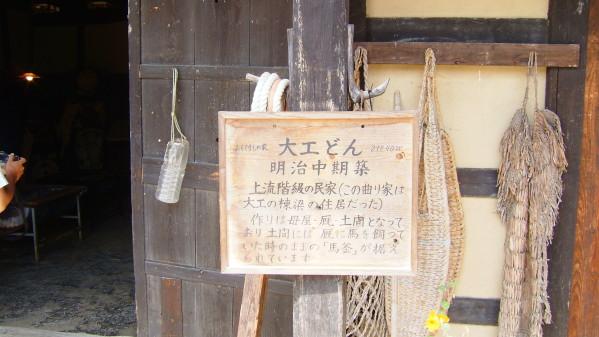 大工どん
明治中期築
上流階級の民家(この曲り家は
大工の棟梁の住居だった)
作りは母屋・厩、土間となって
おり土間には厩に馬を飼って
いた時のままの「馬釜」が据え
られています